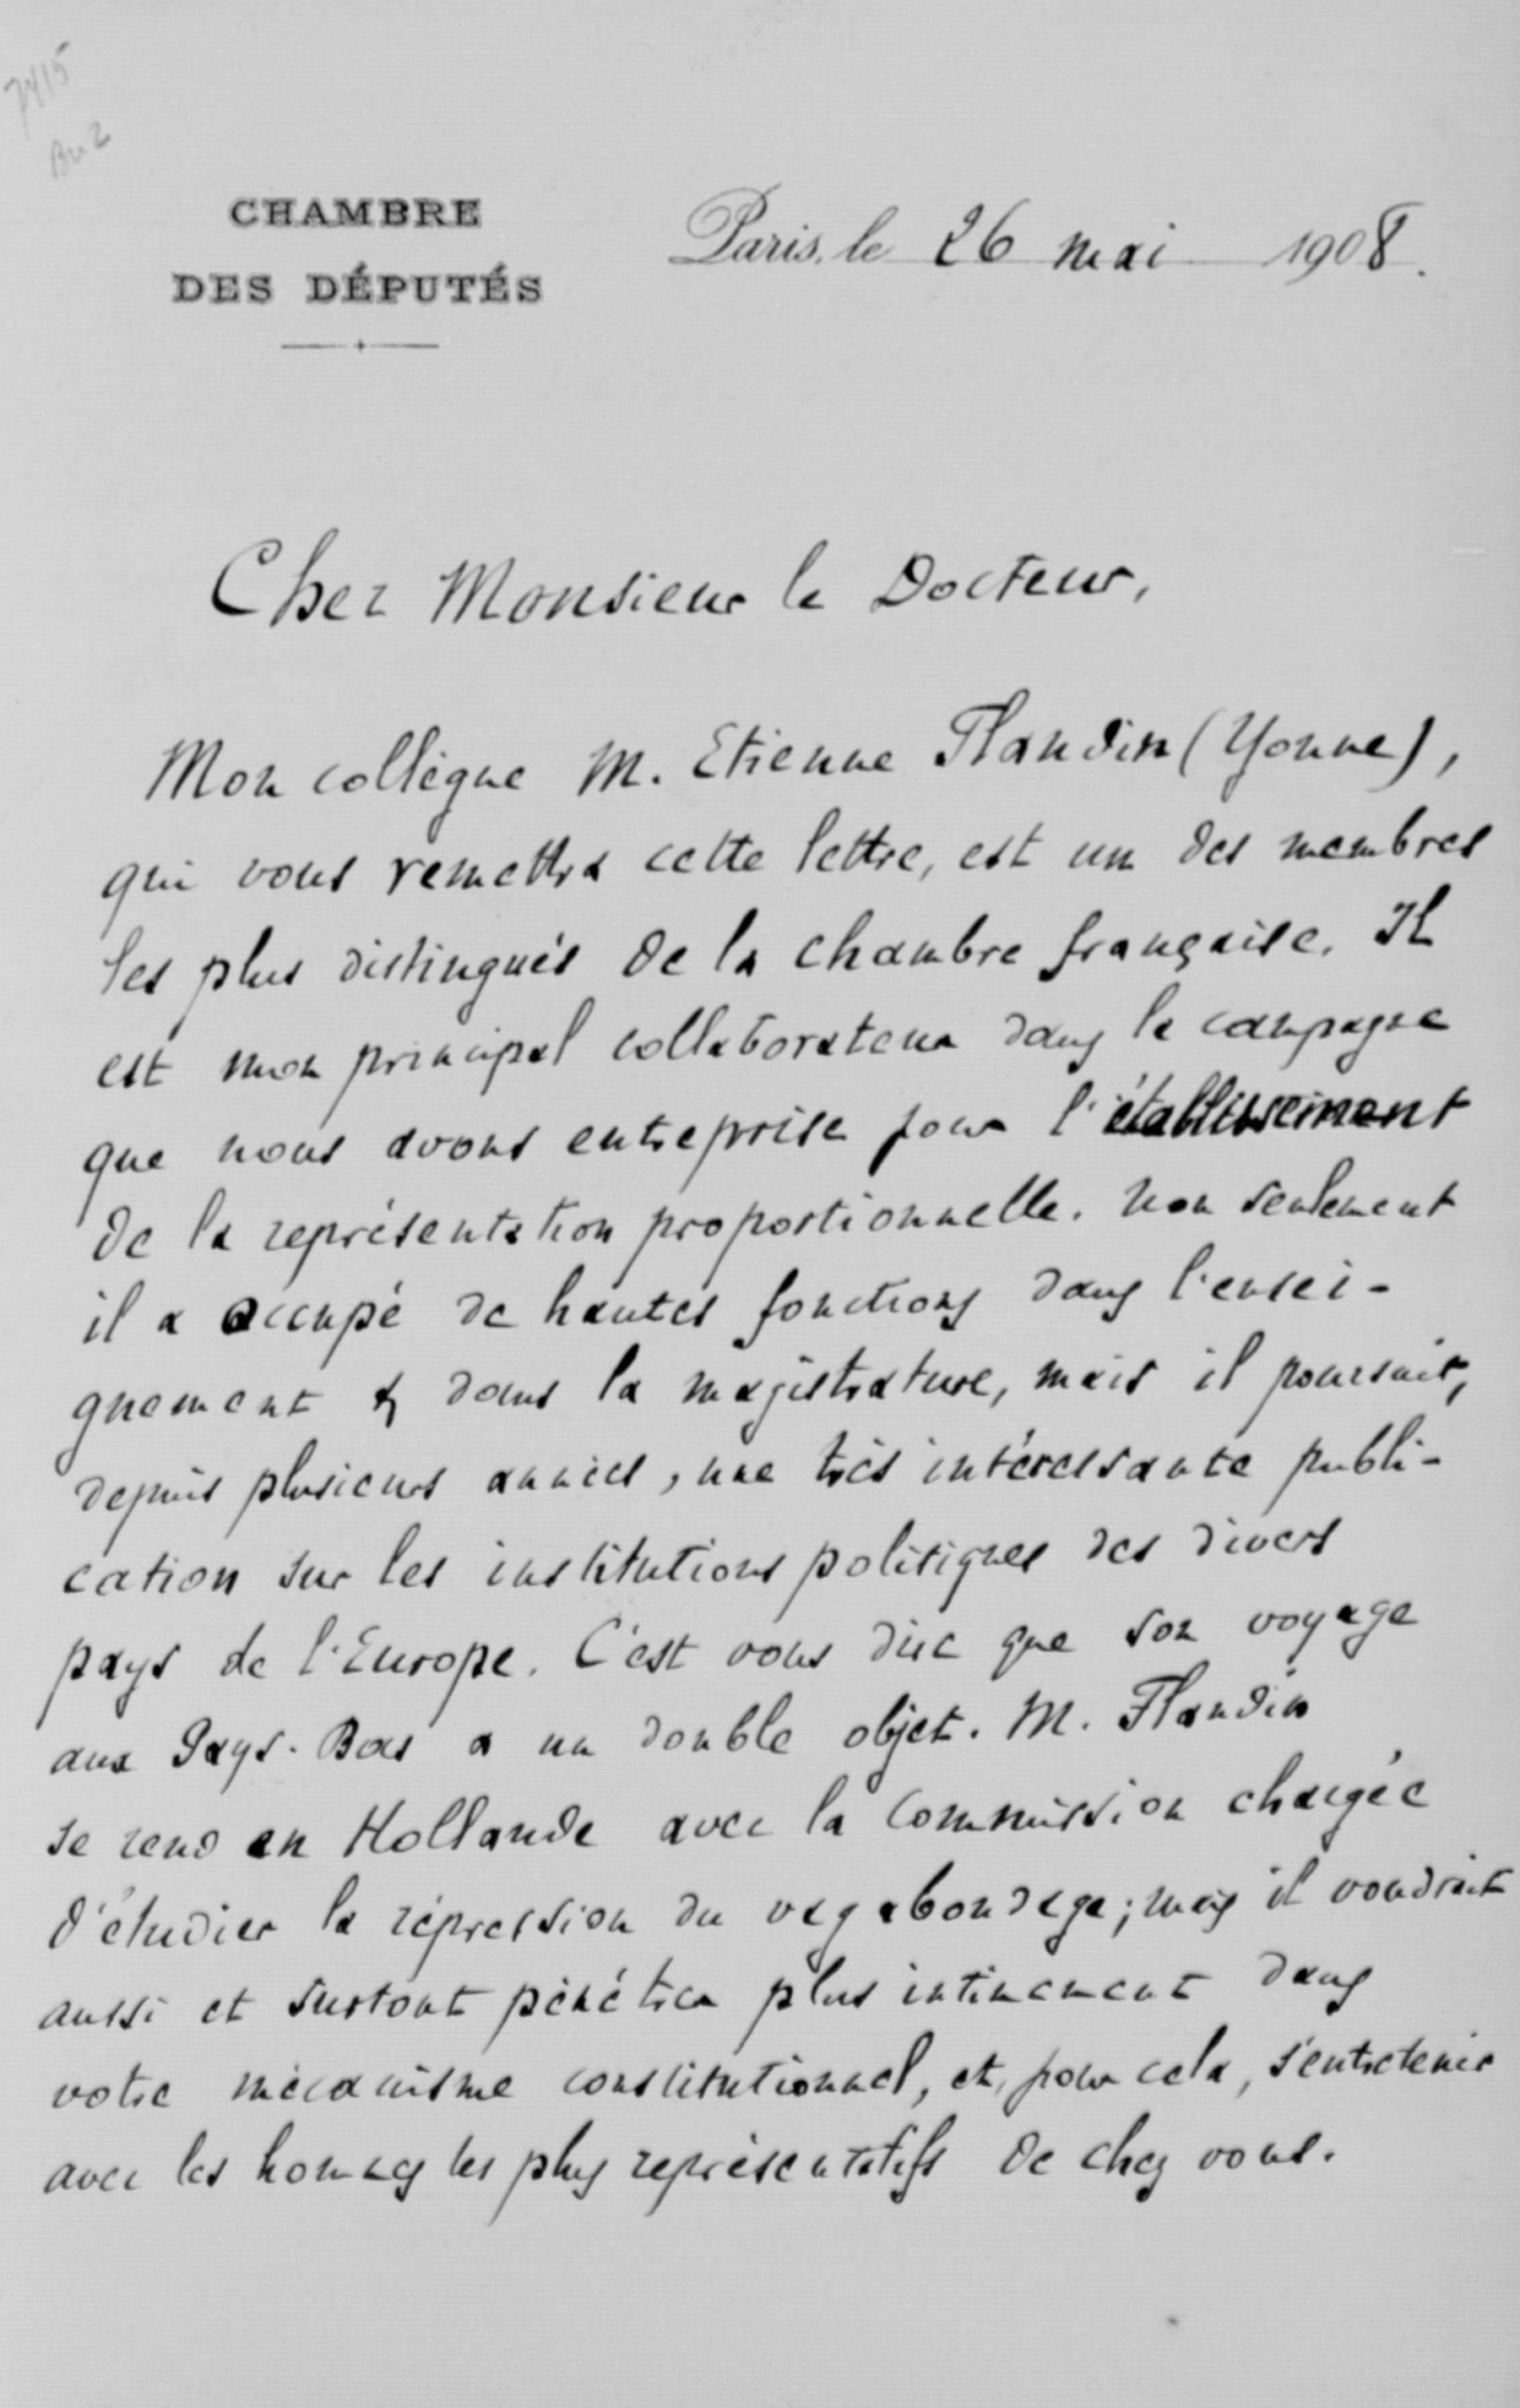 7415
Bu 2
CHAMBRE
DES DÉPUTÉS
Paris, le 26 mai 1908.
Cher Monsieur le Docteur,
Mon collègue M. Etienne Flandin (Yonne),
qui vous remettra cette lettre, est un des membres
les plus distingués de la chambre française. Il
est mon principal collaborateur dans la campagne
que nous avons entreprise pour l'établissement
de la représentation proportionnelle. Non seulement
il a occupé de hautes fonctions dans l'ensei-
gnement & dans la magistrature, mais il poursuit,
depuis plusieurs années, une très intéressante publi-
cation sur les institutions politiques des divers
pays de l'Europe. C'est vous dire que son voyage
aux Pays-Bas a un double objet. M. Flandin
se rend en Hollande avec la Commission chargée
d'étudier la répression du vagabondage; mais il voudrait
aussi et surtout pénétrer plus intimement dans
votre mécanisme constitutionnel, et, pour cela, s'entretenir
avec les hommes les plus représentatifs de chez vous.